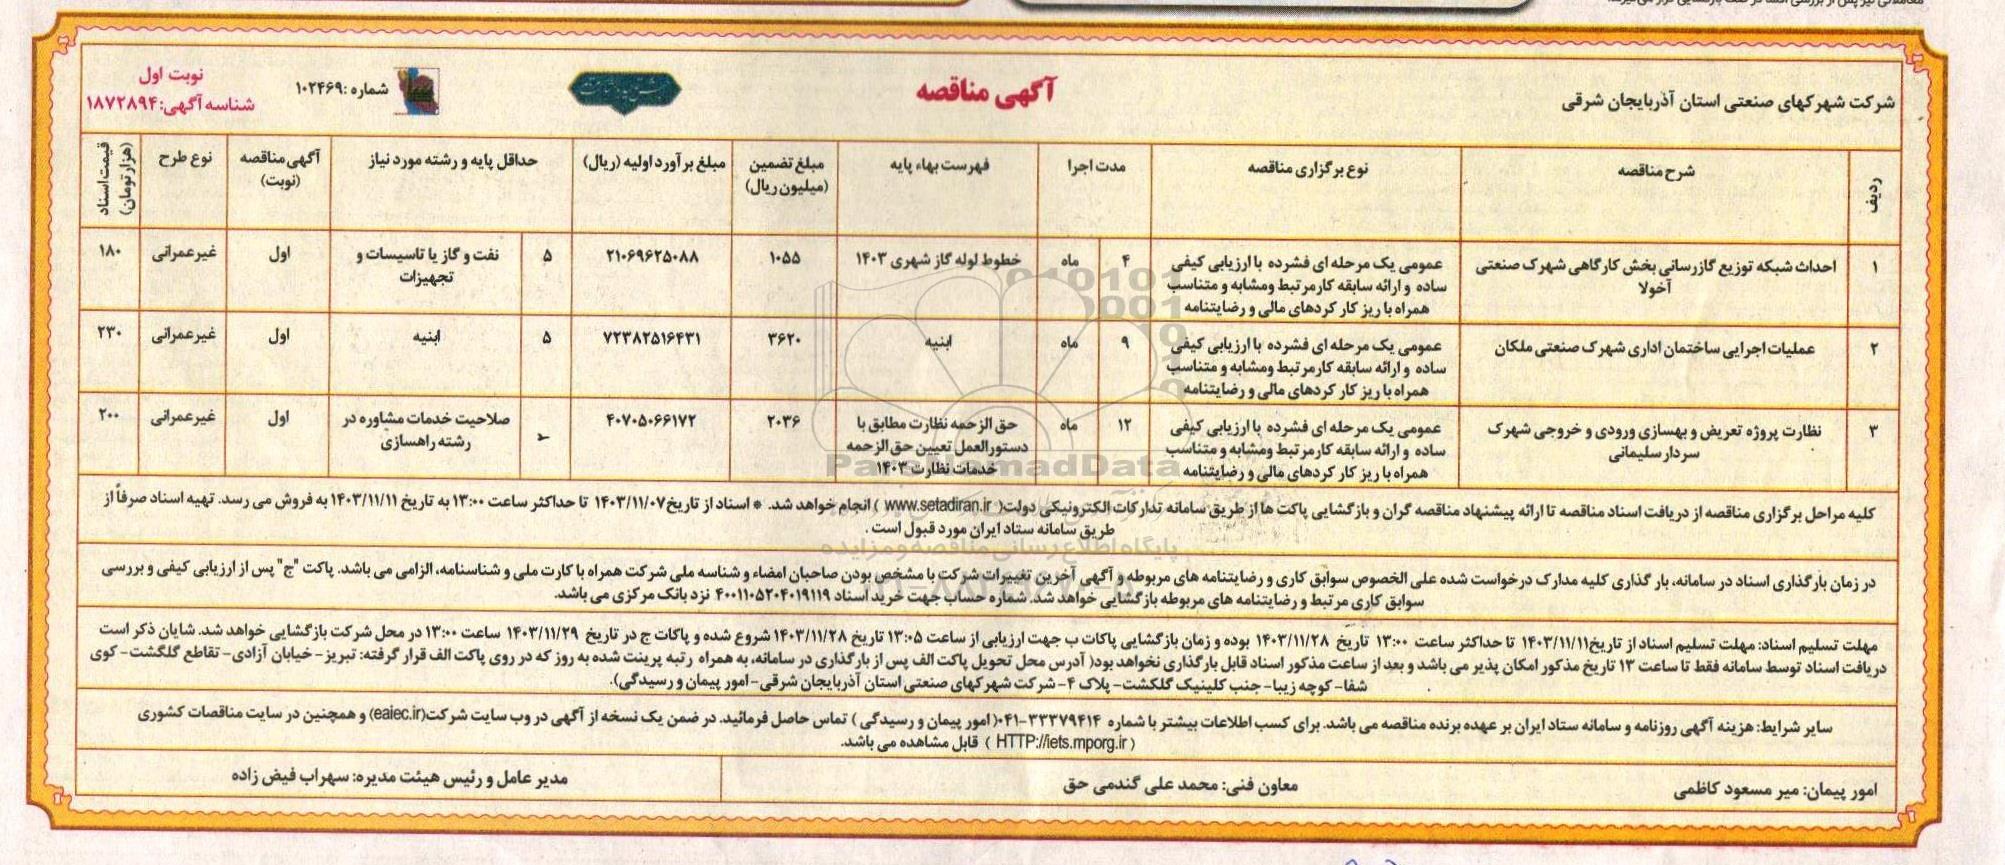 شرکت شهرکهای صنعتی استان آذربایجان شرقی
آگهی مناقصه
شماره :۱۰۲۴۶۹
نوبت اول
شناسه آگهی: ۱۸۷۲۸۹۴
ردیف | شرح مناقصه | نوع برگزاری مناقصه | مدت اجرا | فهرست بهاء پایه | مبلغ تضمین (میلیون ریال) | مبلغ برآورد اولیه (ریال) | حداقل پایه و رشته مورد نیاز | آگهی مناقصه (نوبت) | نوع طرح | قیمت اسناد (هزار تومان)
۱ | احداث شبکه توزیع گازرسانی بخش کارگاهی شهرک صنعتی آخولا | عمومی یک مرحله ای فشرده با ارزیابی کیفی ساده و ارائه سابقه کارمرتبط ومشابه و متناسب همراه با ریز کار کردهای مالی و رضایتنامه | ۴ | ماه | خطوط لوله گاز شهری ۱۴۰۳ | ۱۰۵۵ | ۲۱۰۶۹۶۲۵۰۸۸ | ۵ | نفت و گاز یا تاسیسات و تجهیزات | اول | غیرعمرانی | ۱۸۰
۲ | عملیات اجرایی ساختمان اداری شهرک صنعتی ملکان | عمومی یک مرحله ای فشرده با ارزیابی کیفی ساده و ارائه سابقه کارمرتبط ومشابه و متناسب همراه با ریز کار کردهای مالی و رضایتنامه | ۹ | ماه | ابنیه | ۳۶۲۰ | ۷۲۳۸۲۵۱۶۴۳۱ | ۵ | ابنیه | اول | غیرعمرانی | ۲۳۰
۳ | نظارت پروژه تعریض و بهسازی ورودی و خروجی شهرک سردار سلیمانی | عمومی یک مرحله ای فشرده با ارزیابی کیفی ساده و ارائه سابقه کارمرتبط ومشابه و متناسب همراه با ریز کار کردهای مالی و رضایتنامه | ۱۲ | ماه | حق الزحمه نظارت مطابق با دستورالعمل تعیین حق الزحمه خدمات نظارت ۱۴۰۳ | ۲۰۳۶ | ۴۰۷۰۵۰۶۶۱۷۲ | صلاحیت خدمات مشاوره در رشته راهسازی | اول | غیرعمرانی | ۲۰۰
کلیه مراحل برگزاری مناقصه از دریافت اسناد مناقصه تا ارائه پیشنهاد مناقصه گران و بازگشایی پاکت ها از طریق سامانه تدارکات الکترونیکی دولت( www.setadiran.ir ) انجام خواهد شد. * اسناد از تاریخ۱۴۰۳/۱۱/۰۷ تا حداکثر ساعت ۱۳:۰۰ به تاریخ ۱۴۰۳/۱۱/۱۱ به فروش می رسد. تهیه اسناد صرفاً از
طریق سامانه ستاد ایران مورد قبول است .
در زمان بارگذاری اسناد در سامانه، بار گذاری کلیه مدارک درخواست شده علی الخصوص سوابق کاری و رضایتنامه های مربوطه و آگهی آخرین تغییرات شرکت با مشخص بودن صاحبان امضاء و شناسه ملی شرکت همراه با کارت ملی و شناسنامه، الزامی می باشد. پاکت "ج" پس از ارزیابی کیفی و بررسی
سوابق کاری مرتبط و رضایتنامه های مربوطه بازگشایی خواهد شد. شماره حساب جهت خرید اسناد ۴۰۰۱۱۰۵۲۰۴۰۱۹۱۱۹ نزد بانک مرکزی می باشد.
مهلت تسلیم اسناد: مهلت تسلیم اسناد از تاریخ۱۴۰۳/۱۱/۱۱ تا حداکثر ساعت ۱۳:۰۰ تاریخ ۱۴۰۳/۱۱/۲۸ بوده و زمان بازگشایی پاکات ب جهت ارزیابی از ساعت ۱۳:۰۵ تاریخ ۱۴۰۳/۱۱/۲۸ شروع شده و پاکات ج در تاریخ ۱۴۰۳/۱۱/۲۹ ساعت ۱۳:۰۰ در محل شرکت بازگشایی خواهد شد. شایان ذکر است
دریافت اسناد توسط سامانه فقط تا ساعت ۱۳ تاریخ مذکور امکان پذیر می باشد و بعد از ساعت مذکور اسناد قابل بارگذاری نخواهد بود( آدرس محل تحویل پاکت الف پس از بارگذاری در سامانه، به همراه رتبه پرینت شده به روز که در روی پاکت الف قرار گرفته: تبریز- خیابان آزادی- تقاطع گلگشت- کوی
شفا- کوچه زیبا- جنب کلینیک گلگشت- پلاک ۴- شرکت شهرکهای صنعتی استان آذربایجان شرقی-امور پیمان و رسیدگی).
سایر شرایط: هزینه آگهی روزنامه و سامانه ستاد ایران بر عهده برنده مناقصه می باشد. برای کسب اطلاعات بیشتر با شماره ۳۳۳۷۹۴۱۴-۰۴۱( امور پیمان و رسیدگی ) تماس حاصل فرمائید. در ضمن یک نسخه از آگهی در وب سایت شرکت(eaiec.ir) و همچنین در سایت مناقصات کشوری
( HTTP://iets.mporg.ir ) قابل مشاهده می باشد.
امور پیمان: میر مسعود کاظمی
معاون فنی: محمد علی گندمی حق
مدیر عامل و رئیس هیئت مدیره: سهراب فیض زاده
پایگاه اطلاع رسانی مناقصه و مزایده